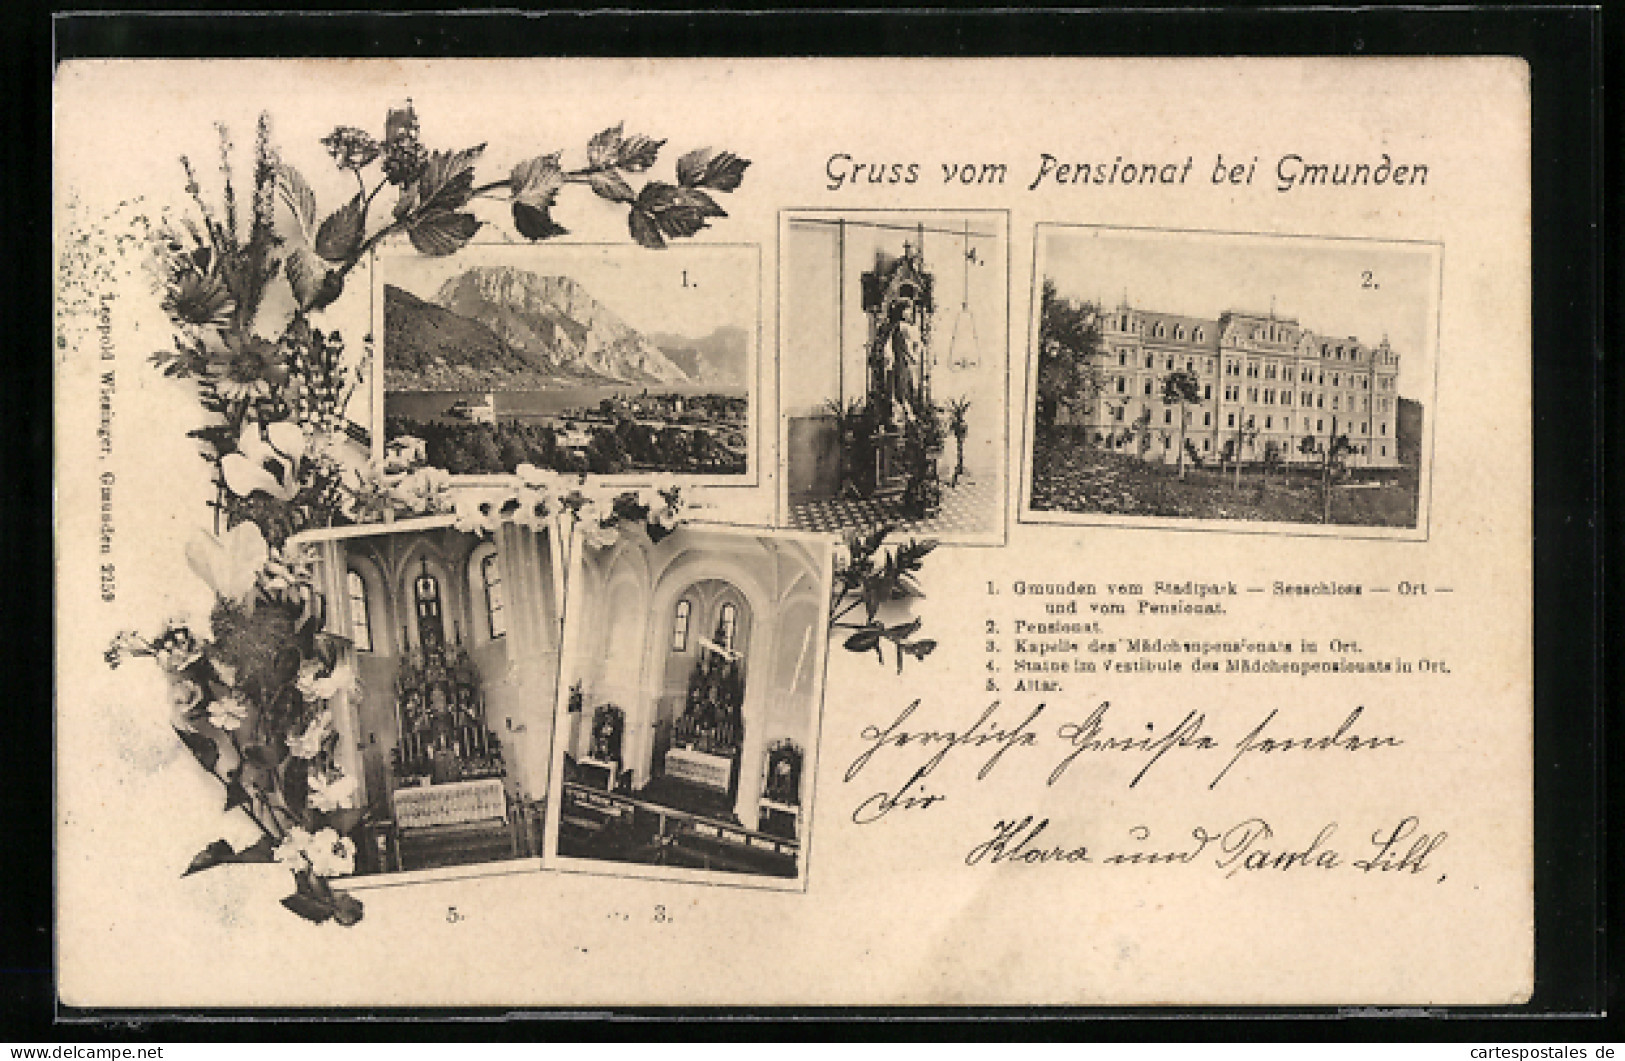 Gruss vom Pensionat bei Gmunden
1.
4.
2.
Leopold Wieninger, Gmunden 2259
1. Gmunden vom Stadtpark — Seeschloss — Ort —
und vom Pensionat.
2. Pensionat.
3. Kapelle des Mädchenpensionats in Ort.
4. Statue im Vestibule des Mädchenpensionats in Ort.
5. Altar.
Herzliche Grüße senden
Dir
Klara und Paula
5.
3.
www.cartespostales.eu
cartespostales de